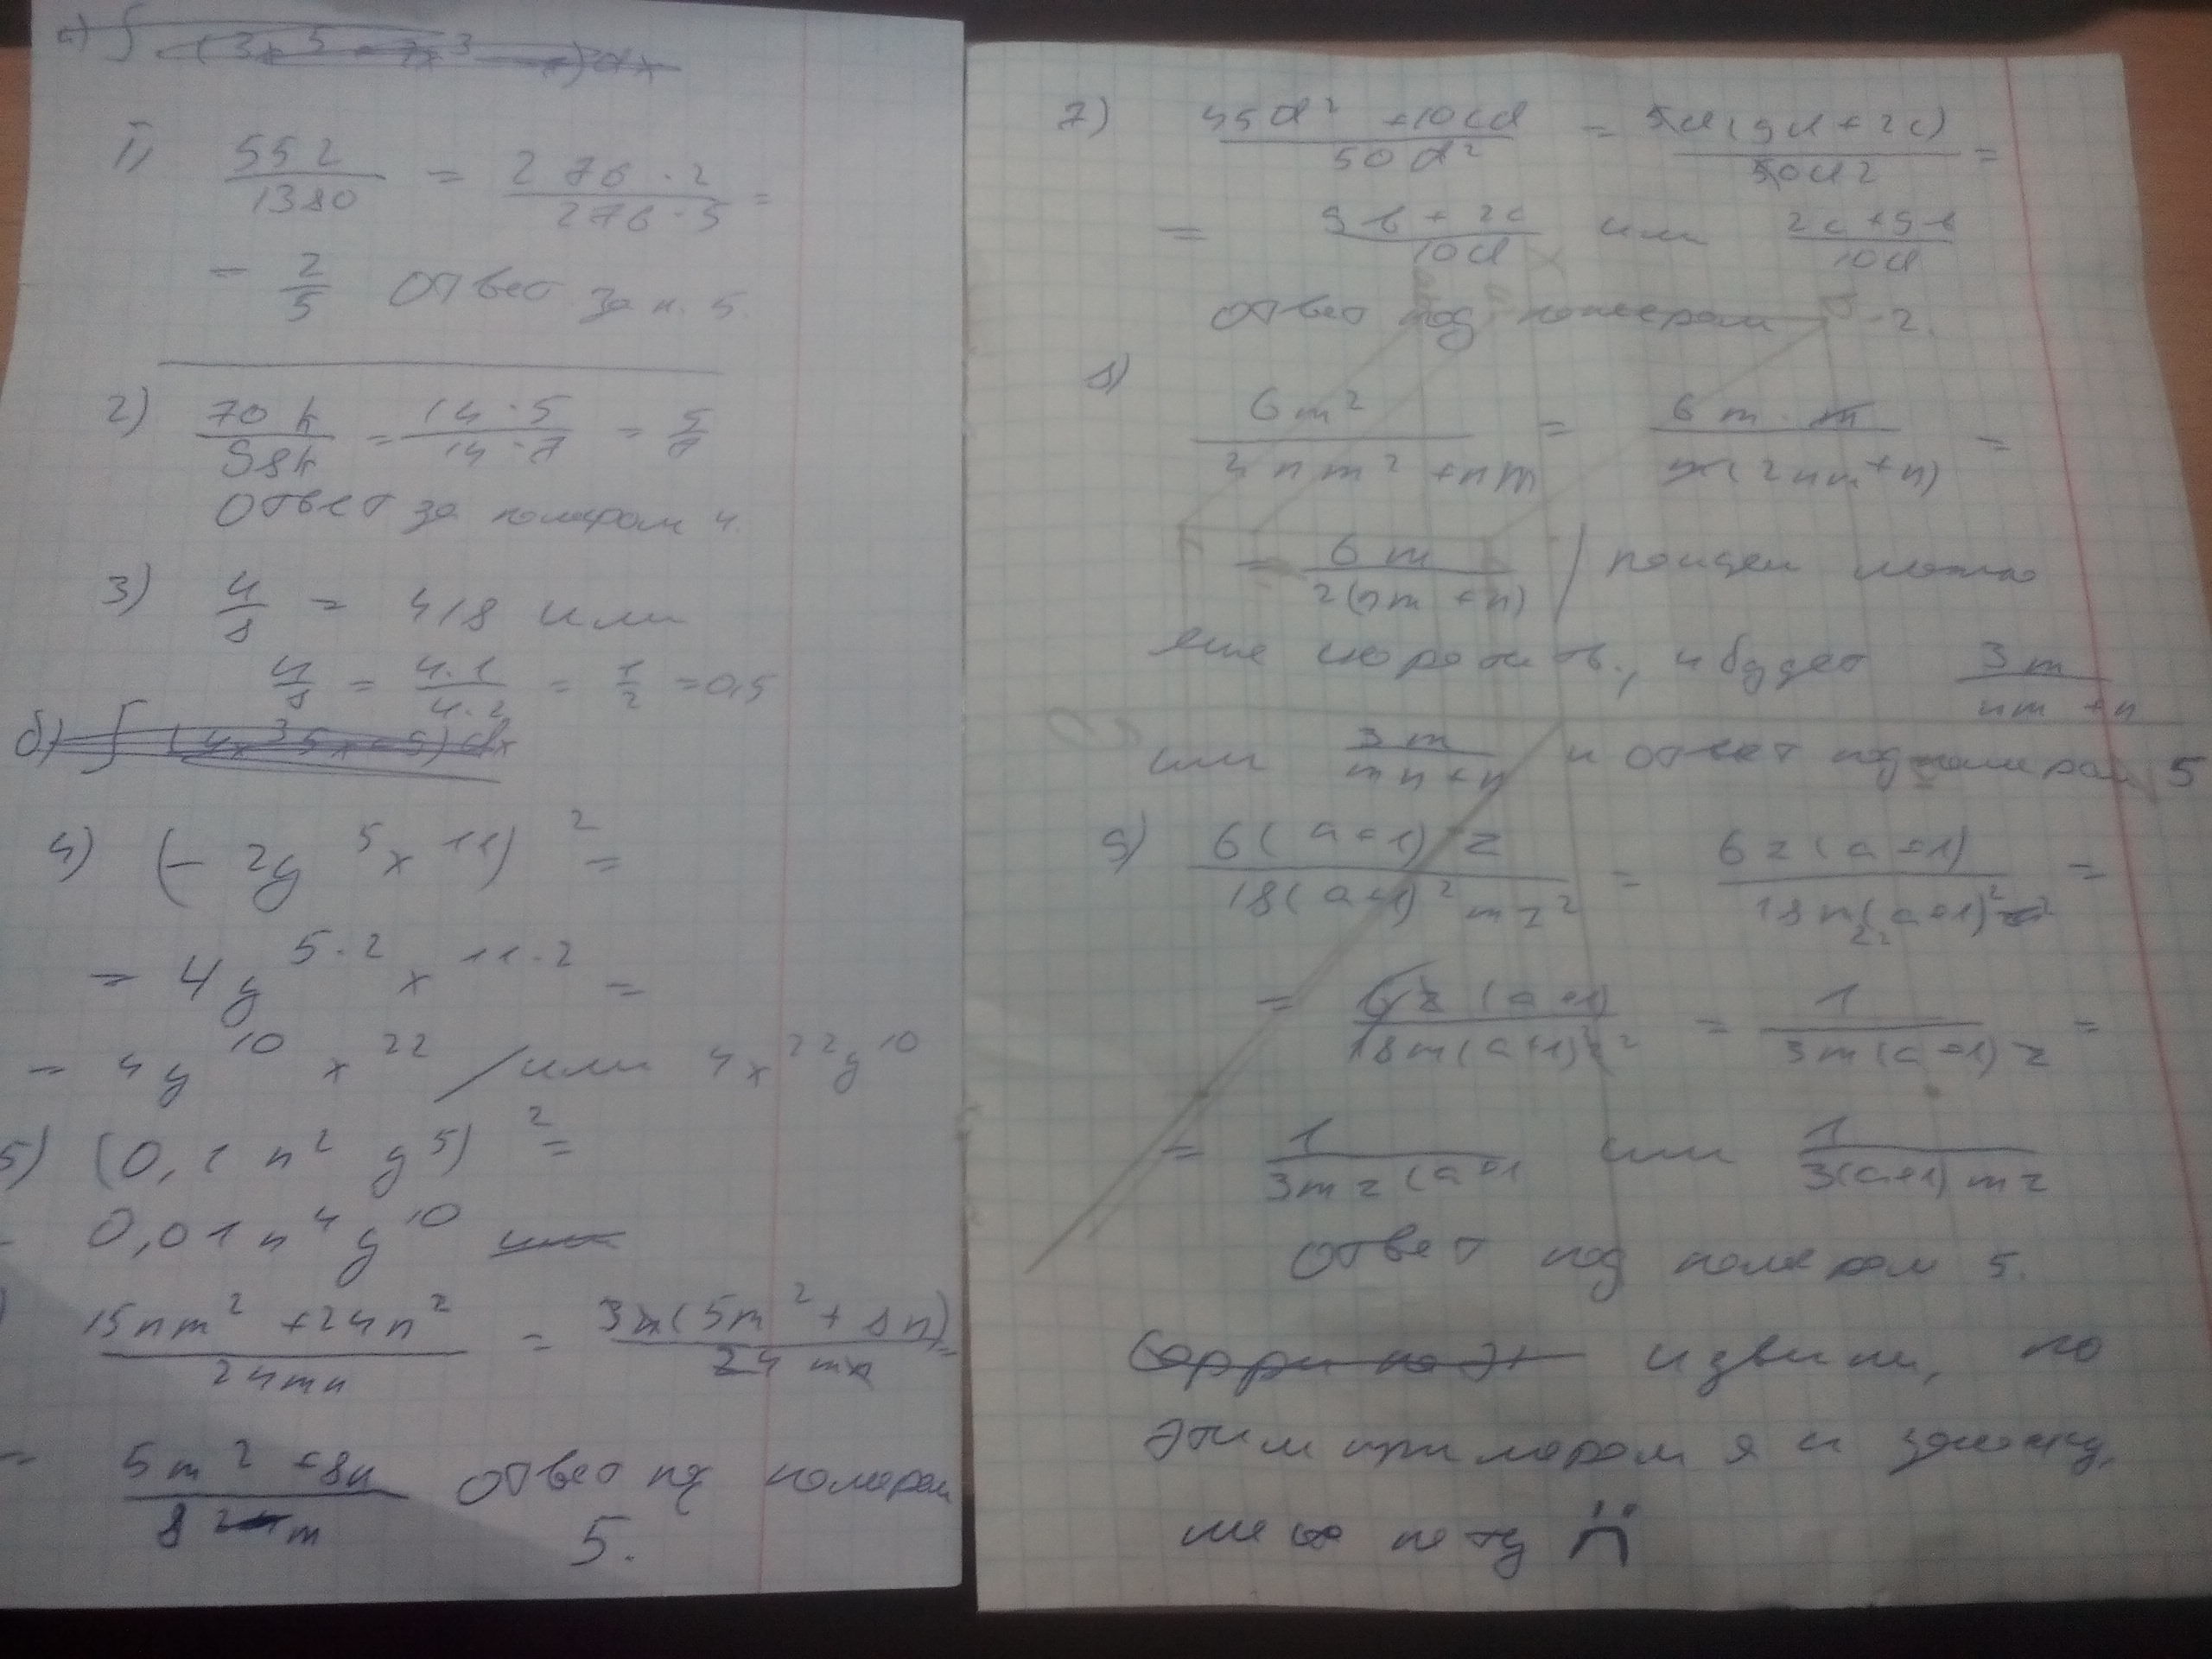 а) ∫ (3x^5 - 7x^3 - x) dx
1) 552/1380 = 276·2/276·5 =
= 2/5 Ответ за н. 5.
2) 70k/98k = 14·5/14·7 = 5/7
Ответ за номером 4.
3) 4/8 = 4/8 или
4/8 = 4·1/4·2 = 1/2 = 0,5
б) ∫ (4x^3 5x-5) dx
4) (-2y^5 x^11)^2 =
= 4y^5·2 x^11·2 =
= 4y^10 x^22 / или 4x^22 y^10
5) (0,1n^2 y^5)^2 =
0,01n^4 y^10
15nm^2 + 24n^2/24mn = 3n(5m^2 + 8n)/24mn =
= 5m^2 + 8n/8m Ответ под номером
5.
7) 45d^2 + 10cd/50d^2 = 5d(9d + 2c)/50d^2 =
= 9b + 2c/10d или 2c + 9b/10d
Ответ под номером - 2.
8) 6m^2/2nm^2 + nm = 6m·m/m(2nm + n) =
= 6m/2(nm + n) /
еще сократить, и будет 3m/nm + n
или 3m/mn + n и ответ под номером 5
9) 6(a+1) z/18(a+1)^2 mz^2 = 6z(a+1)/18m(a+1)^2 z^2 =
= 6z(a+1)/18m(a+1)z^2 = 1/3m(a+1)z =
= 1/3mz(a+1 или 1/3(a+1)mz
Ответ под номером 5.
Сорри но эт извини, но
этим примером я и закончу,
места нету